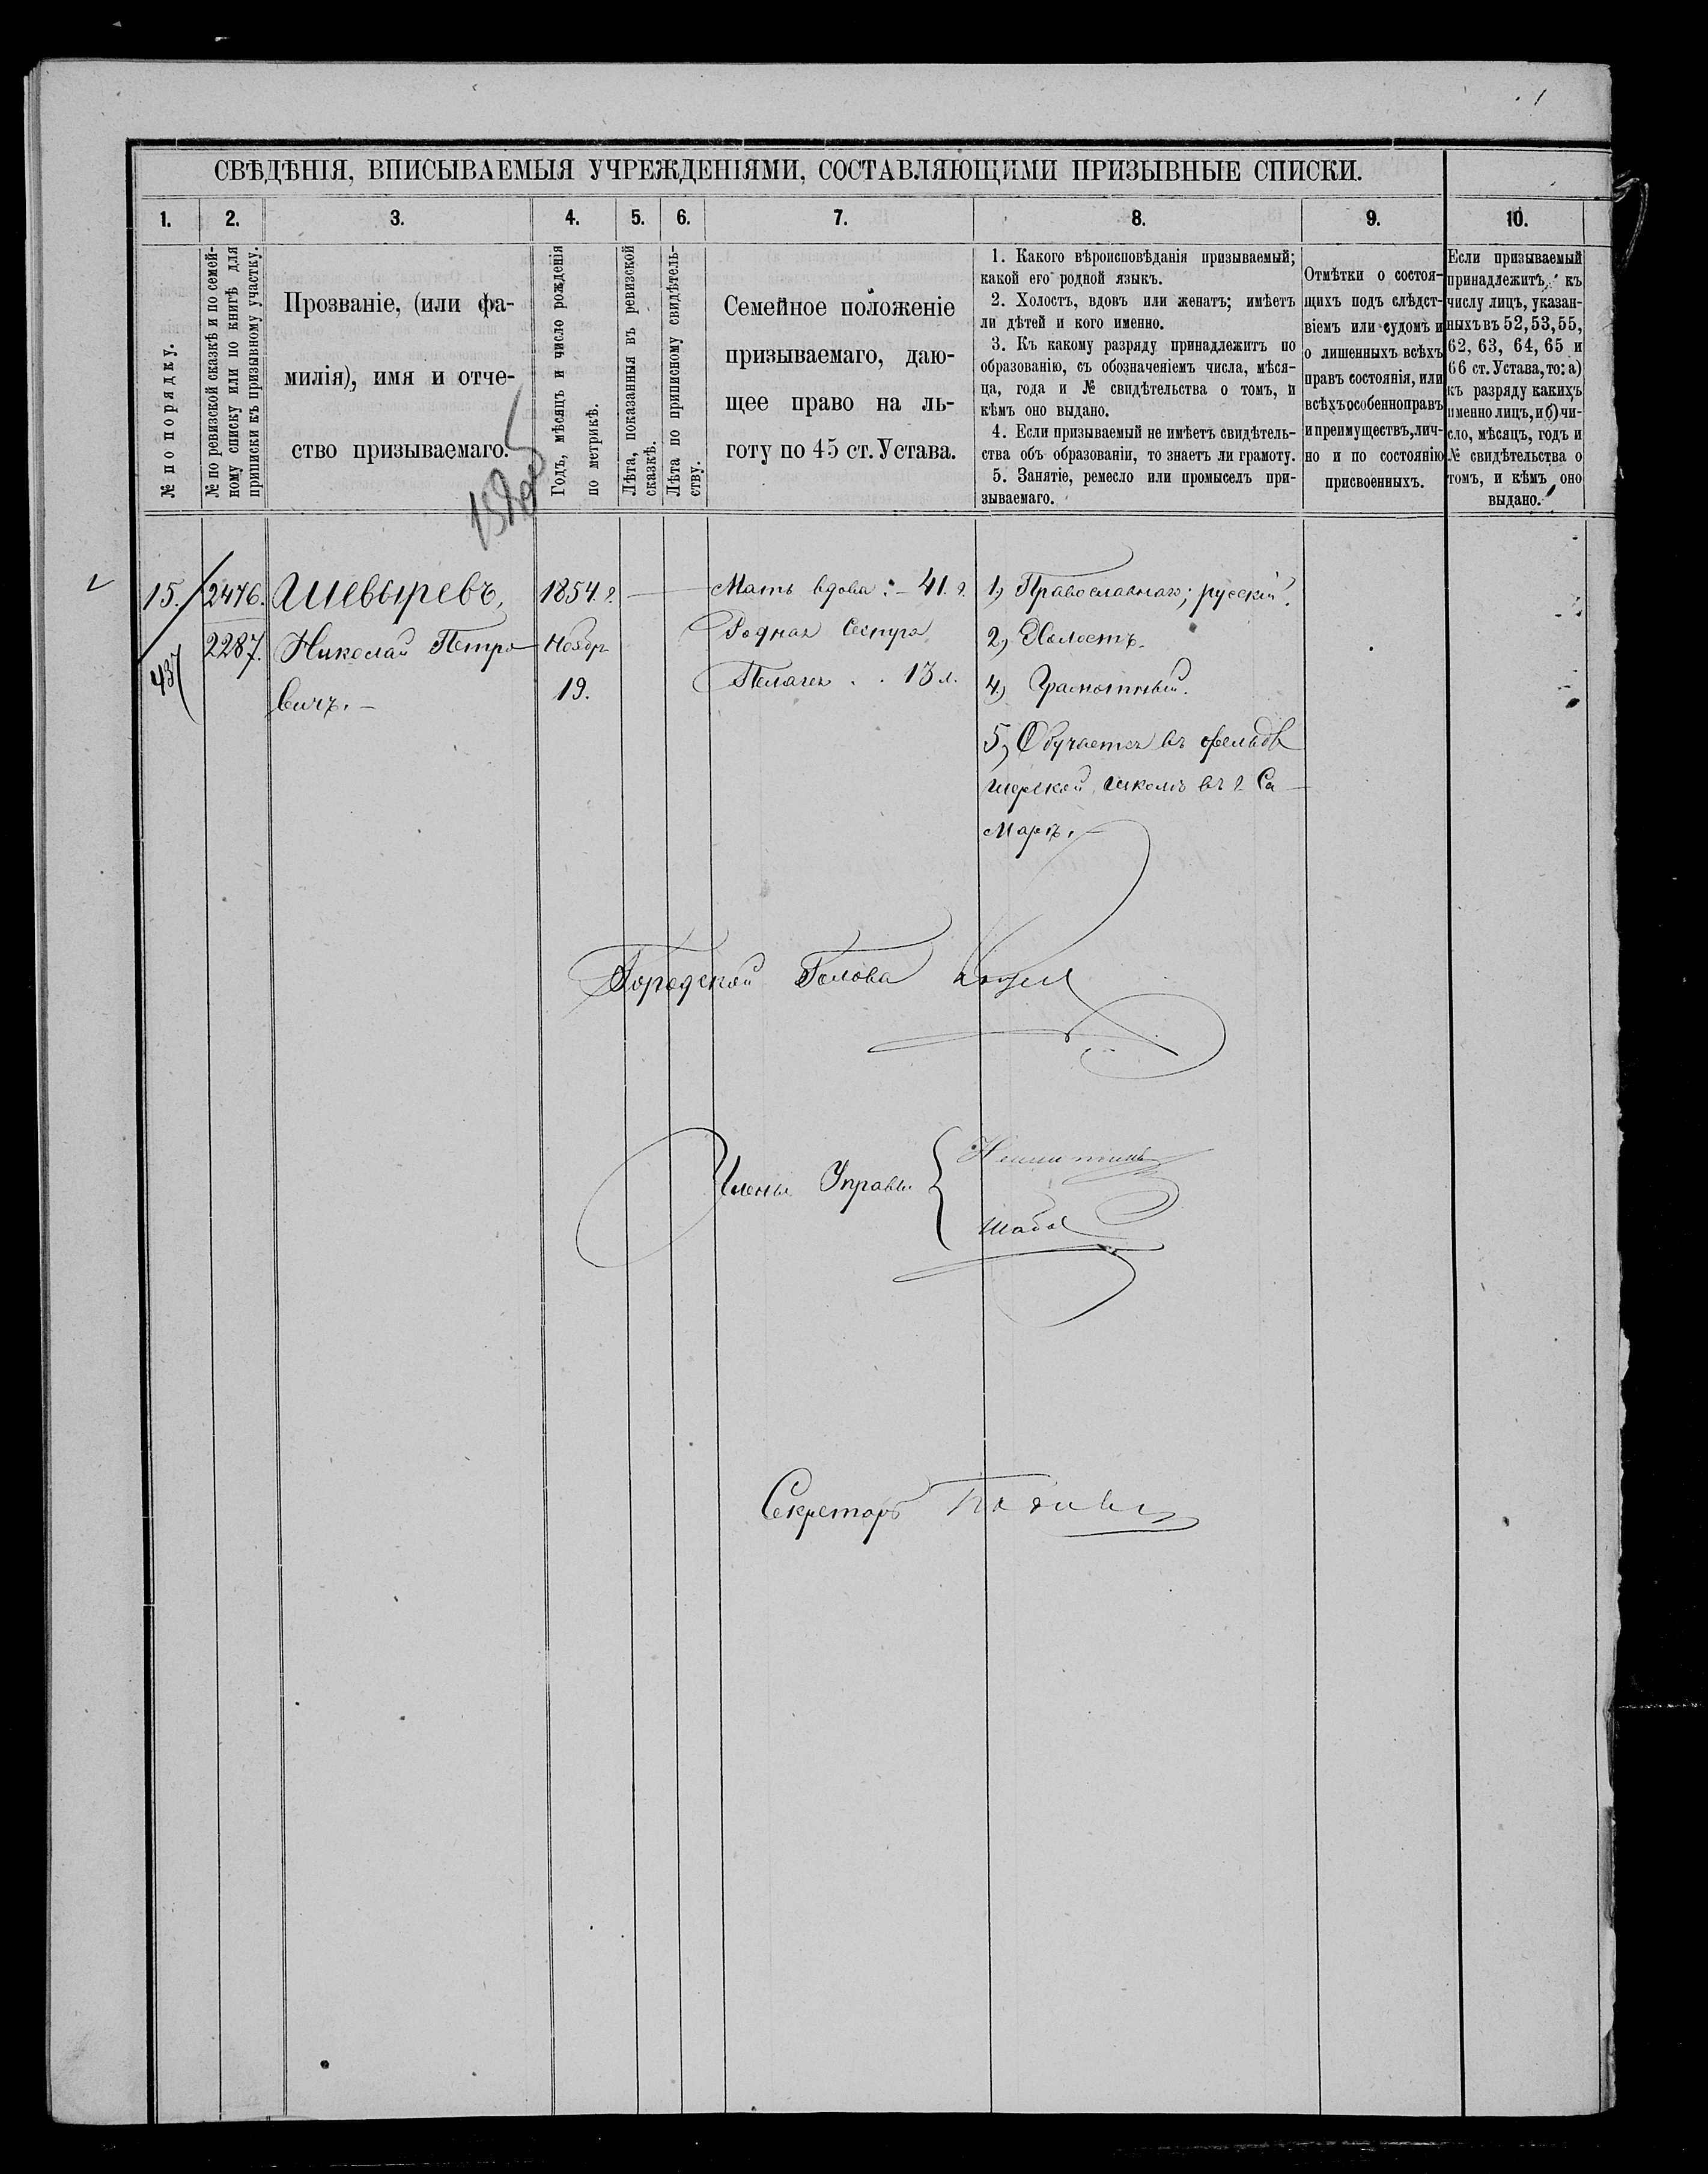 СВѢДѢНІЯ, ВПИСЫВАЕМЫЯ УЧРЕЖДЕНІЯМИ, СОСТАВЛЯЮЩИМИ ПРИЗЫВНЫЕ СПИСКИ.
1. 2. 3. 4. 5. 6. 7. 8. 9. 10.
№ по порядку.
№ по ревизской сказкѣ и по семей-
ному списку или по книгѣ для
приписки къ призывному участку.
Прозваніе, (или фа-
милія), имя и отче-
ство призываемаго.
Годъ, мѣсяцъ и число рожденія
по метрикѣ.
Лѣта, показанныя въ ревизской
сказкѣ.
Лѣта по приписному свидѣтель-
ству.
Семейное положеніе
призываемаго, даю-
щее право на ль-
готу по 45 ст. Устава.
1. Какого вѣроисповѣданія призываемый;
какой его родной языкъ.
2. Холостъ, вдовъ или женатъ; имѣетъ
ли дѣтей и кого именно.
3. Къ какому разряду принадлежитъ по
образованію, съ обозначеніемъ числа, мѣся-
ца, года и № свидѣтельства о томъ, и
кѣмъ оно выдано.
4. Если призываемый не имѣетъ свидѣтель-
ства объ образованіи, то знаетъ ли грамоту.
5. Занятіе, ремесло или промыселъ при-
зываемаго.
Отмѣтки о состоя-
щихъ подъ слѣдст-
віемъ или судомъ и
о лишенныхъ всѣхъ
правъ состоянія, или
всѣхъ особенно правъ
и преимуществъ, лич-
но и по состоянію
присвоенныхъ.
Если призываемый
принадлежитъ къ
числу лицъ, указан-
ныхъ въ 52, 53, 55,
62, 63, 64, 65 и
66 ст. Устава, то: а)
къ разряду какихъ
именно лицъ, и б) чи-
сло, мѣсяцъ, годъ и
№ свидѣтельства о
томъ, и кѣмъ оно
выдано.
15.
437
2476.
2287.
Шевыревъ,
Николай Петро
вичъ. –
1854. г.
Ноябр
19.
Мать вдова: – 41. г.
Родная Сестра
Пелагея . . 13 л.
1, Православнаго; русскій.
2, Холостъ.
4, Грамотный.
5, Обучается въ фельд
шерской школѣ въ г. Са
марѣ. –
Городской Голова
Члены Управы
Секретарь